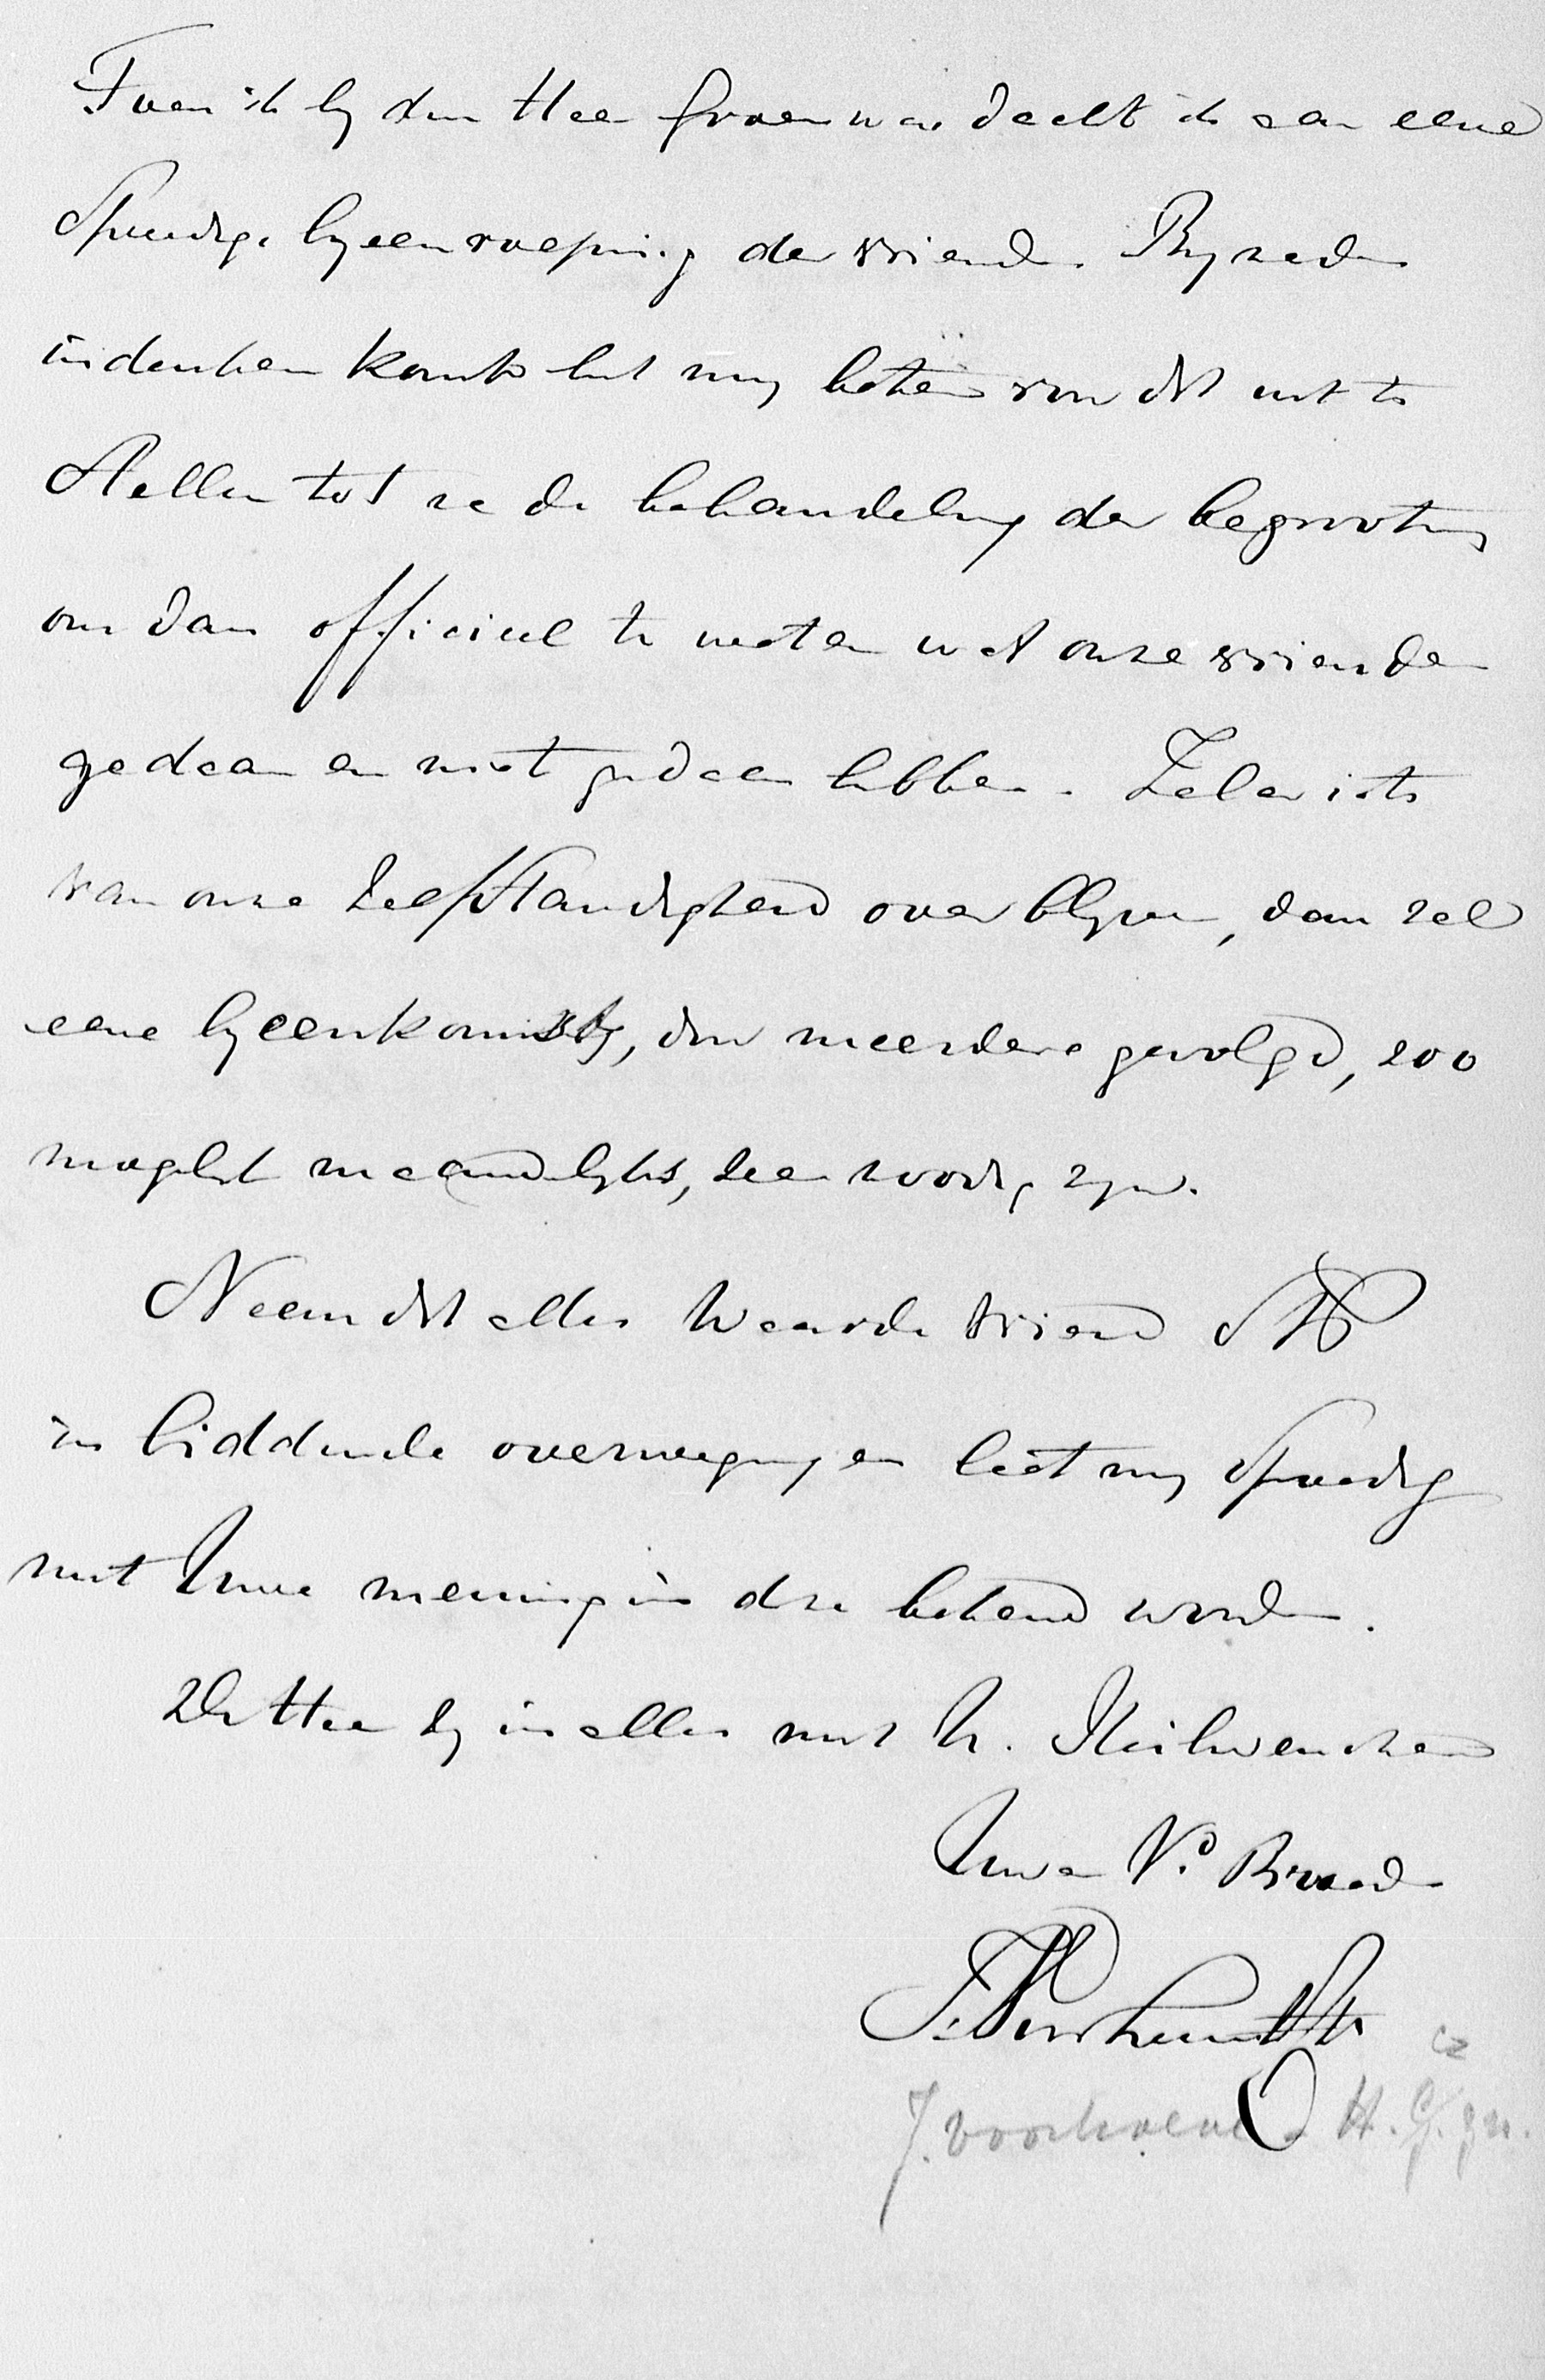 Toen ik by den Heer Groen was dacht ik aan eene
spoedige byeenroeping der vrienden. By nader
indenken komt het my beter voor dit uit te
stellen tot na de behandeling der begrooting
om dan officieel te weten wat onze vrienden
gedaan en niet gedaan hebben. Zal er iets
van onze zelfstandigheid overblyven, dan zal
eene byeenkomst, door meerdere gevolgd, zoo
mogelyk maandelyks, zeer noodig zyn.
Neem dit alles Waarde Vriend
in biddende overweging en laat my spoedig
met Uwe meening in deze bekend worden.
De Heer zy in alles met U. Heilwenschend
Uwe Vo Broeder
J. Voorhoeve
J. Voorhoeve H.Czn.